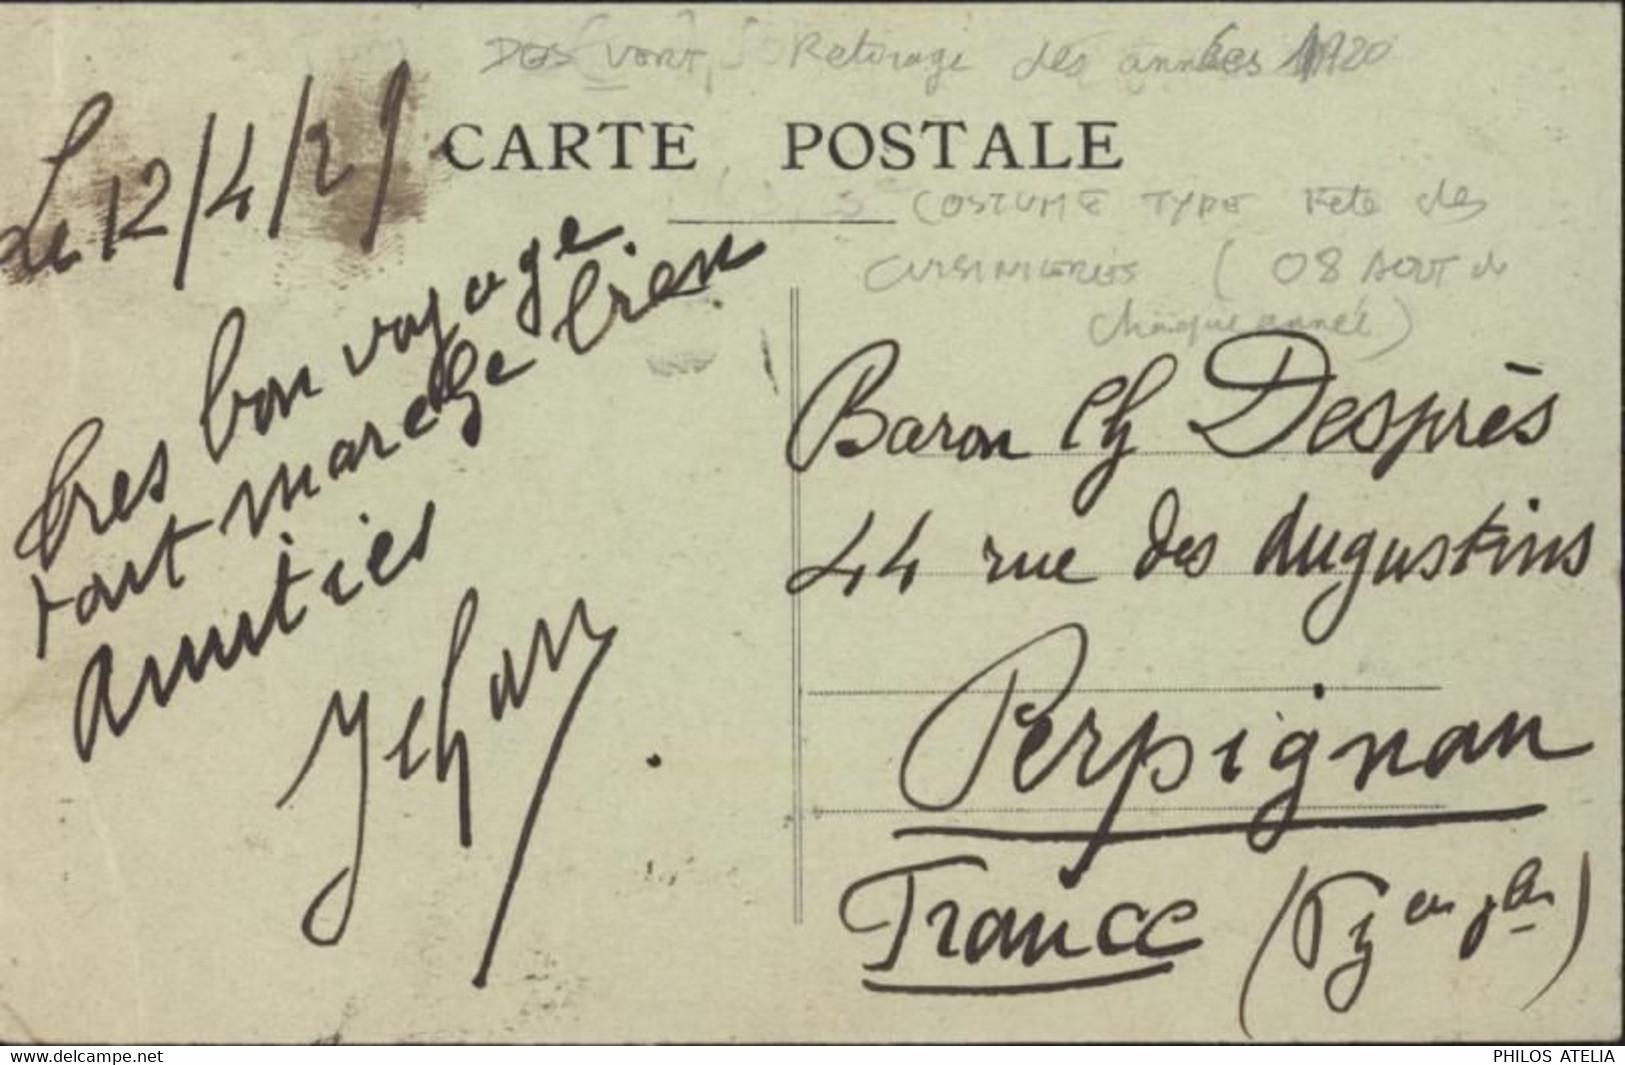 DOS VERT, Retirage des années 1920
CARTE POSTALE
COSTUME TYPE Fete des
CUISINIERES ( 08 AOUT de
chaque année )
Le 12/4/29
tres bon voyage
tout marche bien
amities
Jehan
Baron Ch Desprès
44 rue des Augustins
Perpignan
France (Pyées Ories)
www.delcampe.net
PHILOS ATELIA